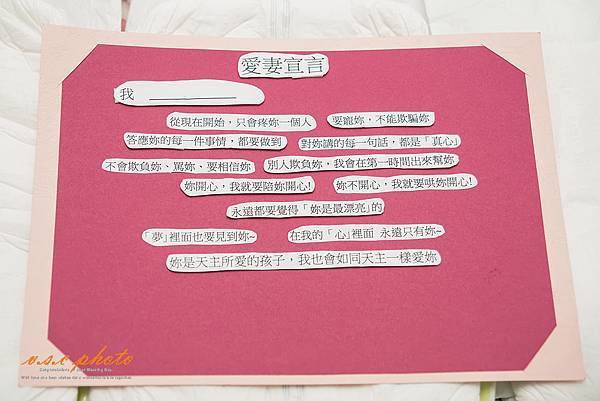 愛妻宣言
我
從現在開始，只會疼妳一個人 要寵妳，不能欺騙妳
答應妳的每一件事情，都要做到 對妳講的每一句話，都是「真心」
不會欺負妳、罵妳、要相信妳 別人欺負妳，我會在第一時間出來幫妳
妳開心，我就要陪妳開心! 妳不開心，我就要哄妳開心!
永遠都要覺得「妳是最漂亮」的
「夢」裡面也要見到妳~ 在我的「心」裡面 永遠只有妳~
妳是天主所愛的孩子，我也會如同天主一樣愛妳
v.s.c photo